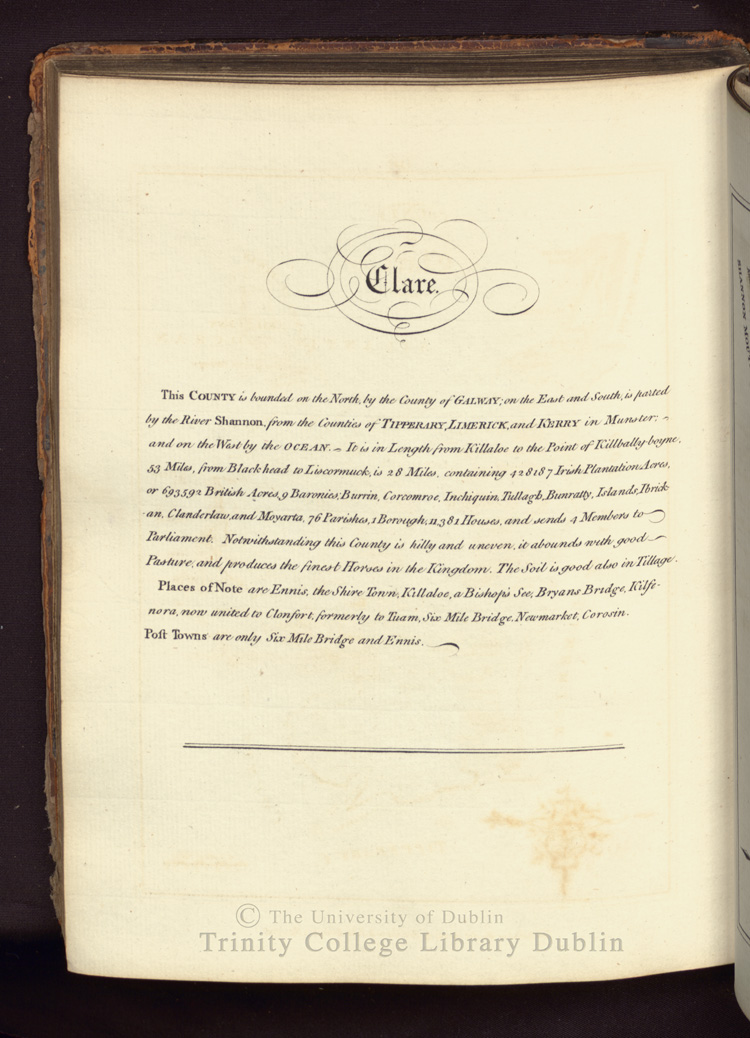 Clare.
This COUNTY is bounded on the North, by the County of GALWAY; on the East and South, is parted
by the River Shannon, from the Counties of TIPPERARY, LIMERICK, and KERRY in Munster;
and on the West by the OCEAN. It is in Length from Killaloe to the Point of Killbally-boyne.
53 Miles, from Black head to Liscormuck, is 28 Miles, containing 428187 Irish Plantation Acres,
or 693592 British Acres, 9 Baronies, Burrin, Corcomroe, Inchiquin, Tullagh, Bunratty, Islands, Ibrick
-an, Clanderlaw, and Moyarta, 76 Parishes, 1 Borough, 11,381 Houses, and sends 4 Members to
Parliament. Notwithstanding this County is hilly and uneven, it abounds with good
Pasture, and produces the finest Horses in the Kingdom. The Soil is good also in Tillage.
Places of Note are Ennis, the Shire Town, Killaloe, a Bishop's See, Bryans Bridge, Kilfe-
nora, now united to Clonfort, formerly to Tuam, Six Mile Bridge, Newmarket, Corosin.
Poſt Towns are only Six Mile Bridge and Ennis.
© The University of Dublin
Trinity College Library Dublin
SHANNON